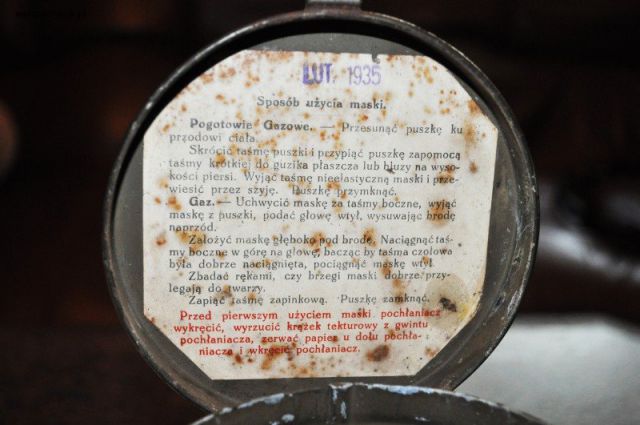 LUT. 1935
Sposób użycia maski.
Pogotowie Gazowe. — Przesunąć puszkę ku
przodowi ciała.
Skrócić taśmę puszki i przypiąć puszkę zapomocą
taśmy krótkiej do guzika płaszcza lub bluzy na wyso-
kości piersi. Wyjąć taśmę nieelastyczną maski i prze-
wiesić przez szyję. Puszkę przymknąć.
Gaz. — Uchwycić maskę za taśmy boczne, wyjąć
maskę z puszki, podać głowę wtył, wysuwając brodę
naprzód.
Założyć maskę głęboko pod brodę. Naciągnąć taś-
my boczne w górę na głowę, bacząc by taśma czołowa
była dobrze naciągnięta, pociągnąć maskę wtył.
Zbadać rękami, czy brzegi maski dobrze przy-
legają do twarzy.
Zapiąć taśmę zapinkową. Puszkę zamknąć.
Przed pierwszym użyciem maski pochłaniacz
wykręcić, wyrzucić krążek tekturowy z gwintu
pochłaniacza, zerwać papier u dołu pochła-
niacza i wkręcić pochłaniacz.